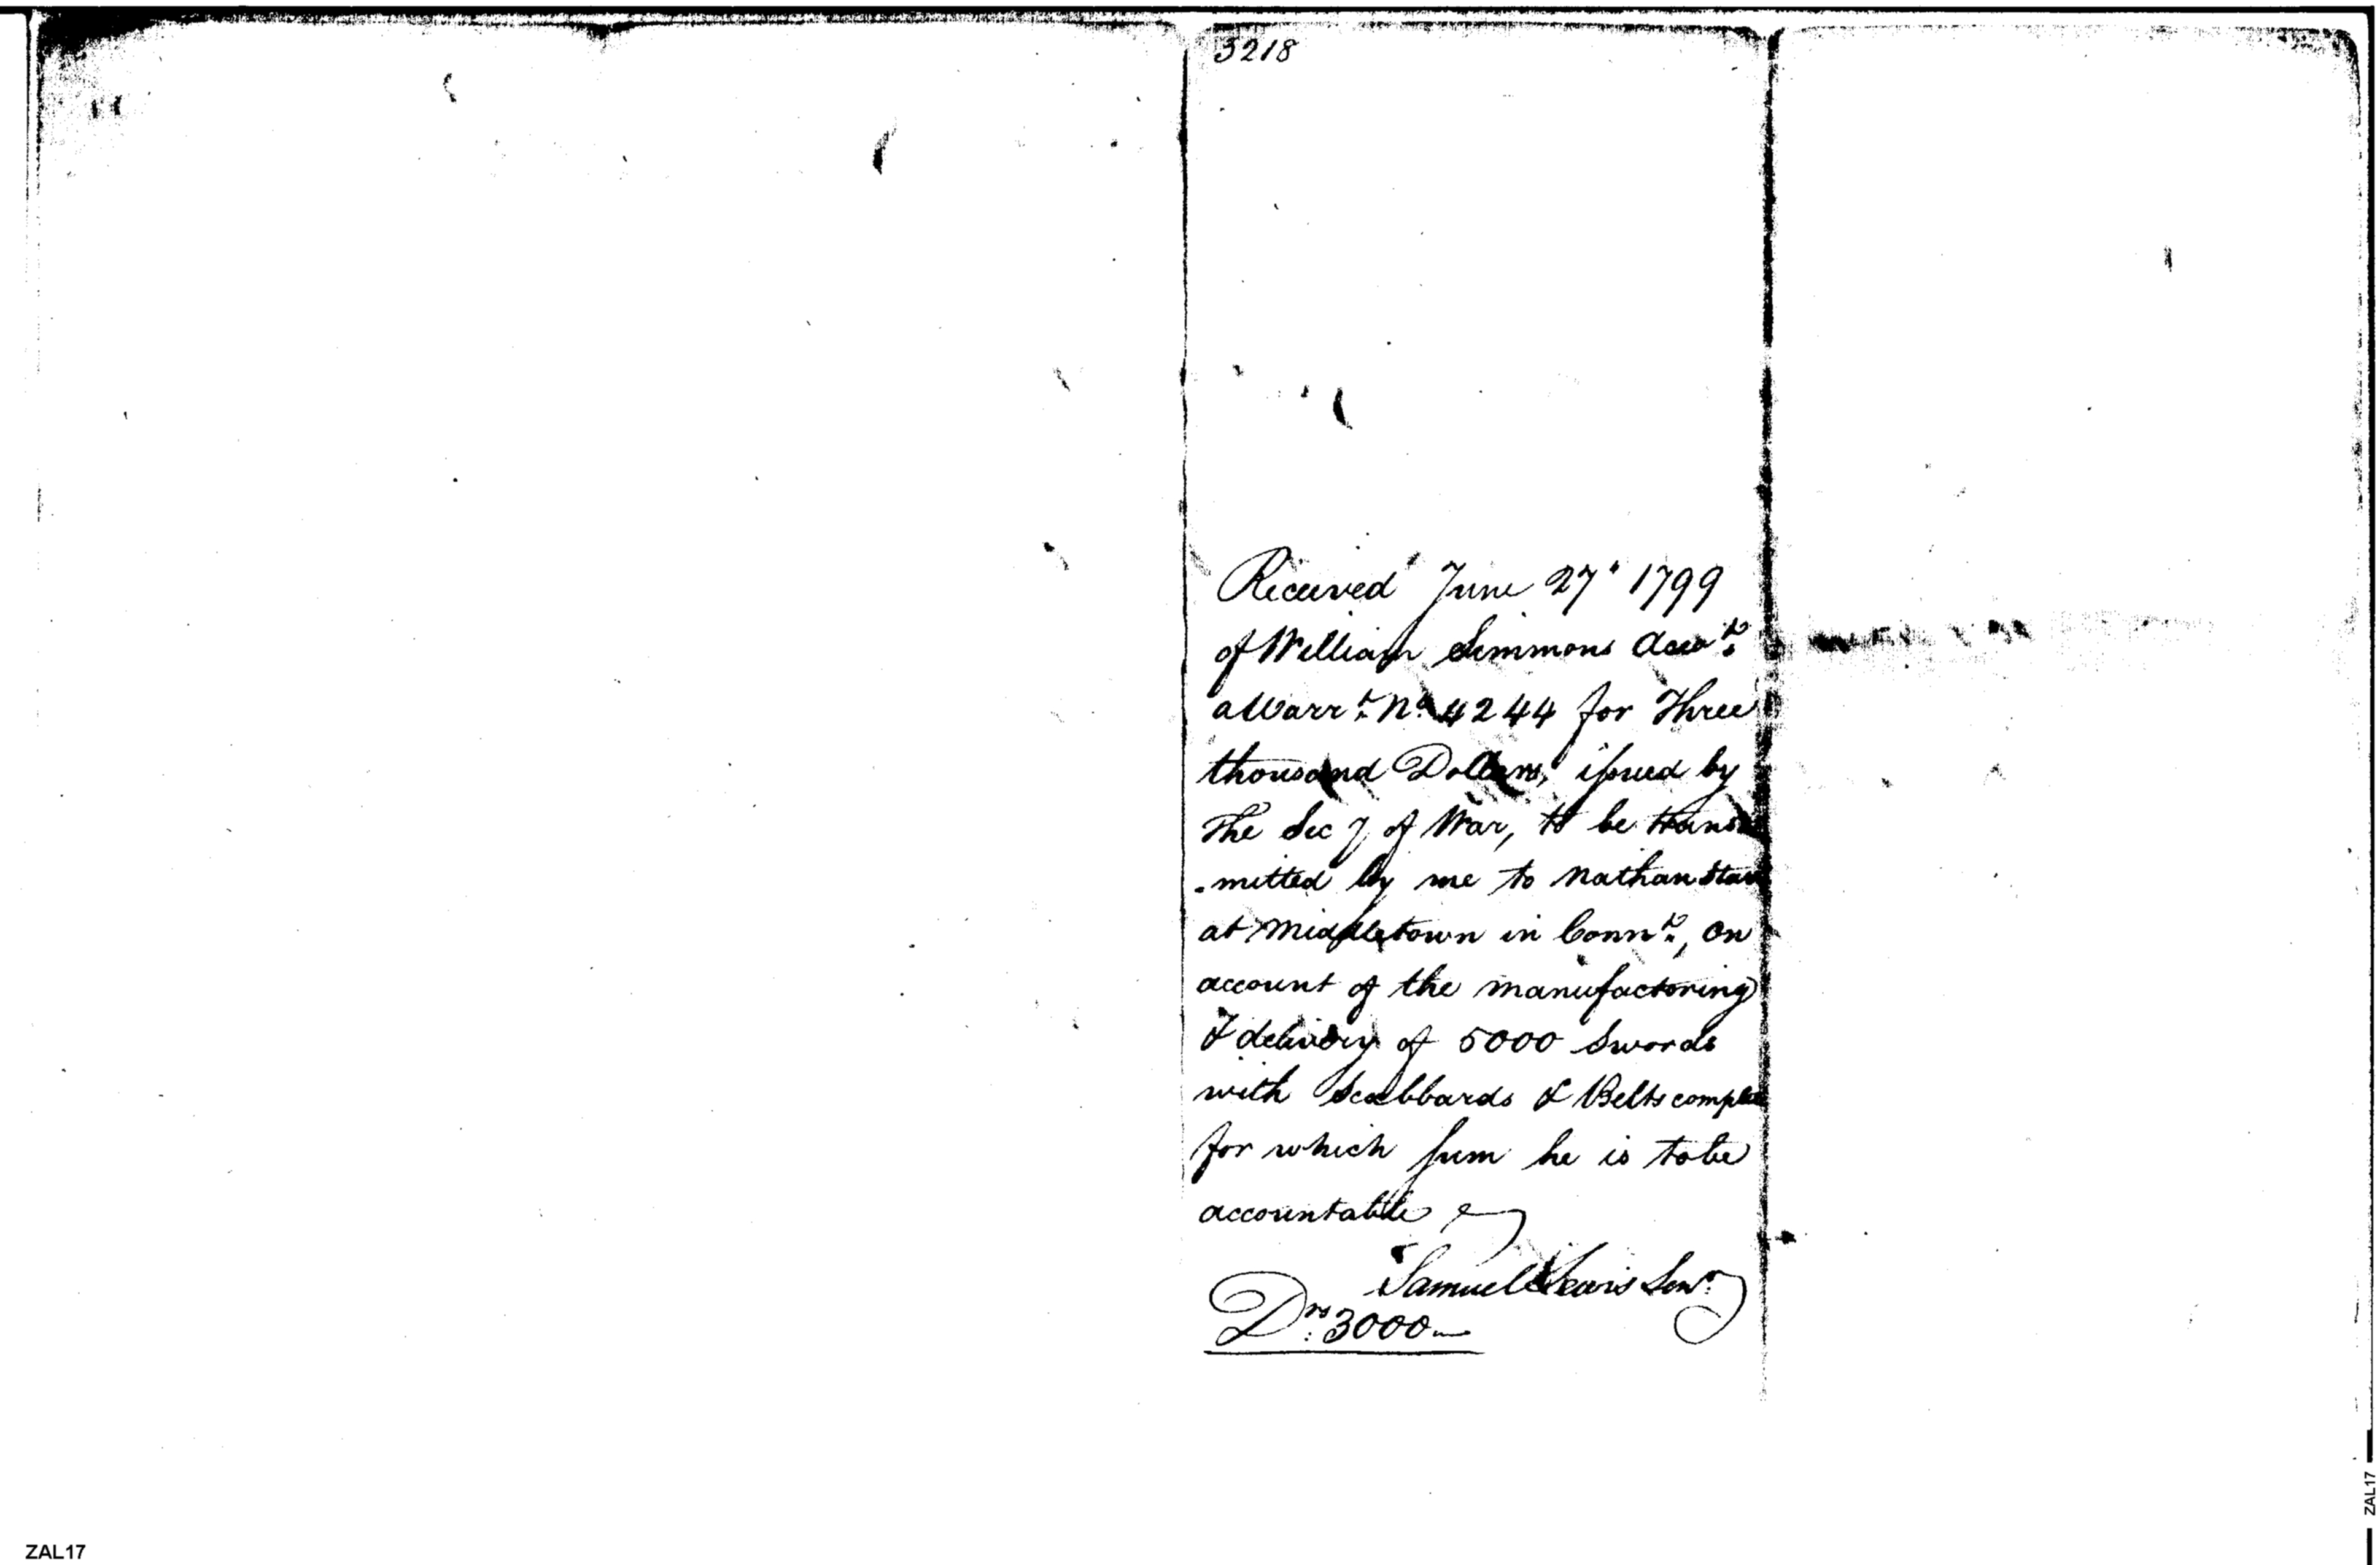 3218
Received June 27" 1799
of William Simmons Acco.t
a Warr.t No. 4244 for Three
thousand Dollars, issued by
The Secy of War, to be trans
-mitted by me to Nathan Starr
at Middletown in Conn.t, on
account of the manufactoring
& delivery of 5000 Swords
with Scabbards & Belts complete
for which sum he is to be
accountable
Samuel Lewis Senr.
Drs. 3000
ZAL17
ZAL17